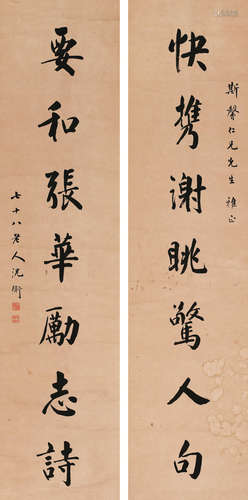 斯馨仁兄先生雅正
快攜謝眺驚人句
要和張華勵志詩
七十八老人沈衛